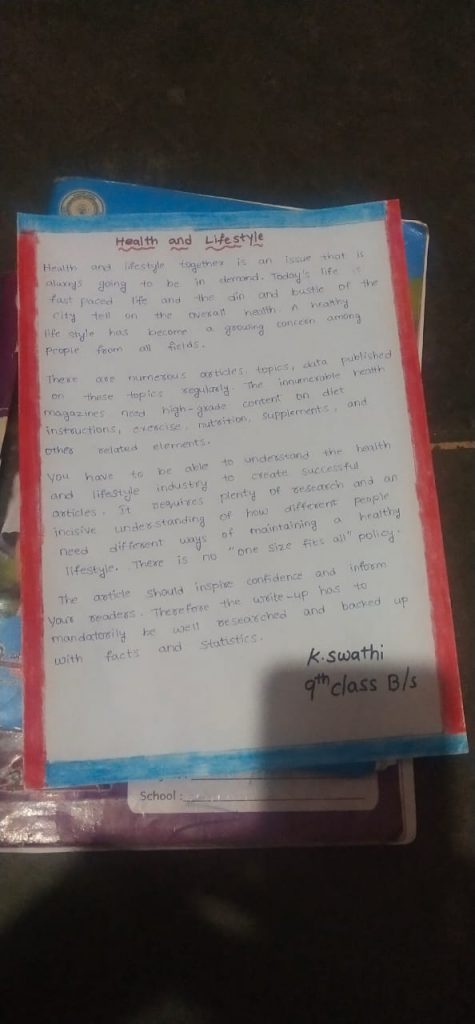 Health and Lifestyle
Health and lifestyle together is an issue that is
always going to be in demand. Today's life is
fast paced life and the din and bustle of the
City tell on the overall health. A healthy
life style has become a growing concern among
People from all fields.
There are numerous articles, topics, data published
on these topics regularly. The innumerable health
magazines need high-grade content on diet
instructions, exercise, nutrition, supplements, and
other related elements.
You have to be able to understand the health
and lifestyle industry to create successful
articles. It requires plenty of research and an
incisive understanding of how different people
need different ways of maintaining a healthy
lifestyle. There is no "one size fits all" policy.
The article should inspire confidence and inform
your readers. Therefore the write-up has to
mandatorily be well researched and backed up
with facts and statistics.
K. Swathi
9th class B/s
School :